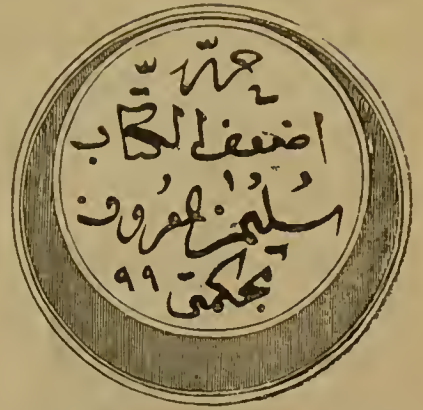 حرره
اضعف الكتاب
سليمن المعروف
بحكمتى ٩٩